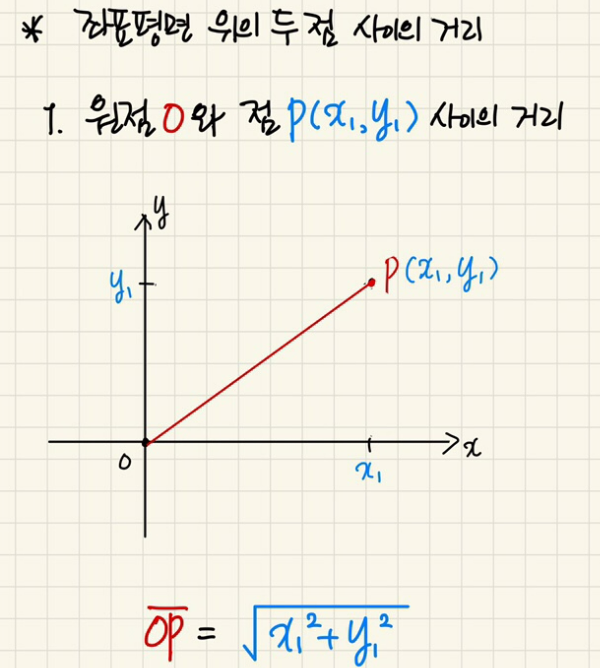 * 좌표평면 위의 두 점 사이의 거리
1. 원점 O와 점 P(x₁, y₁) 사이의 거리
y
y₁
P(x₁, y₁)
O
x₁
x
OP̅ = √(x₁² + y₁²)